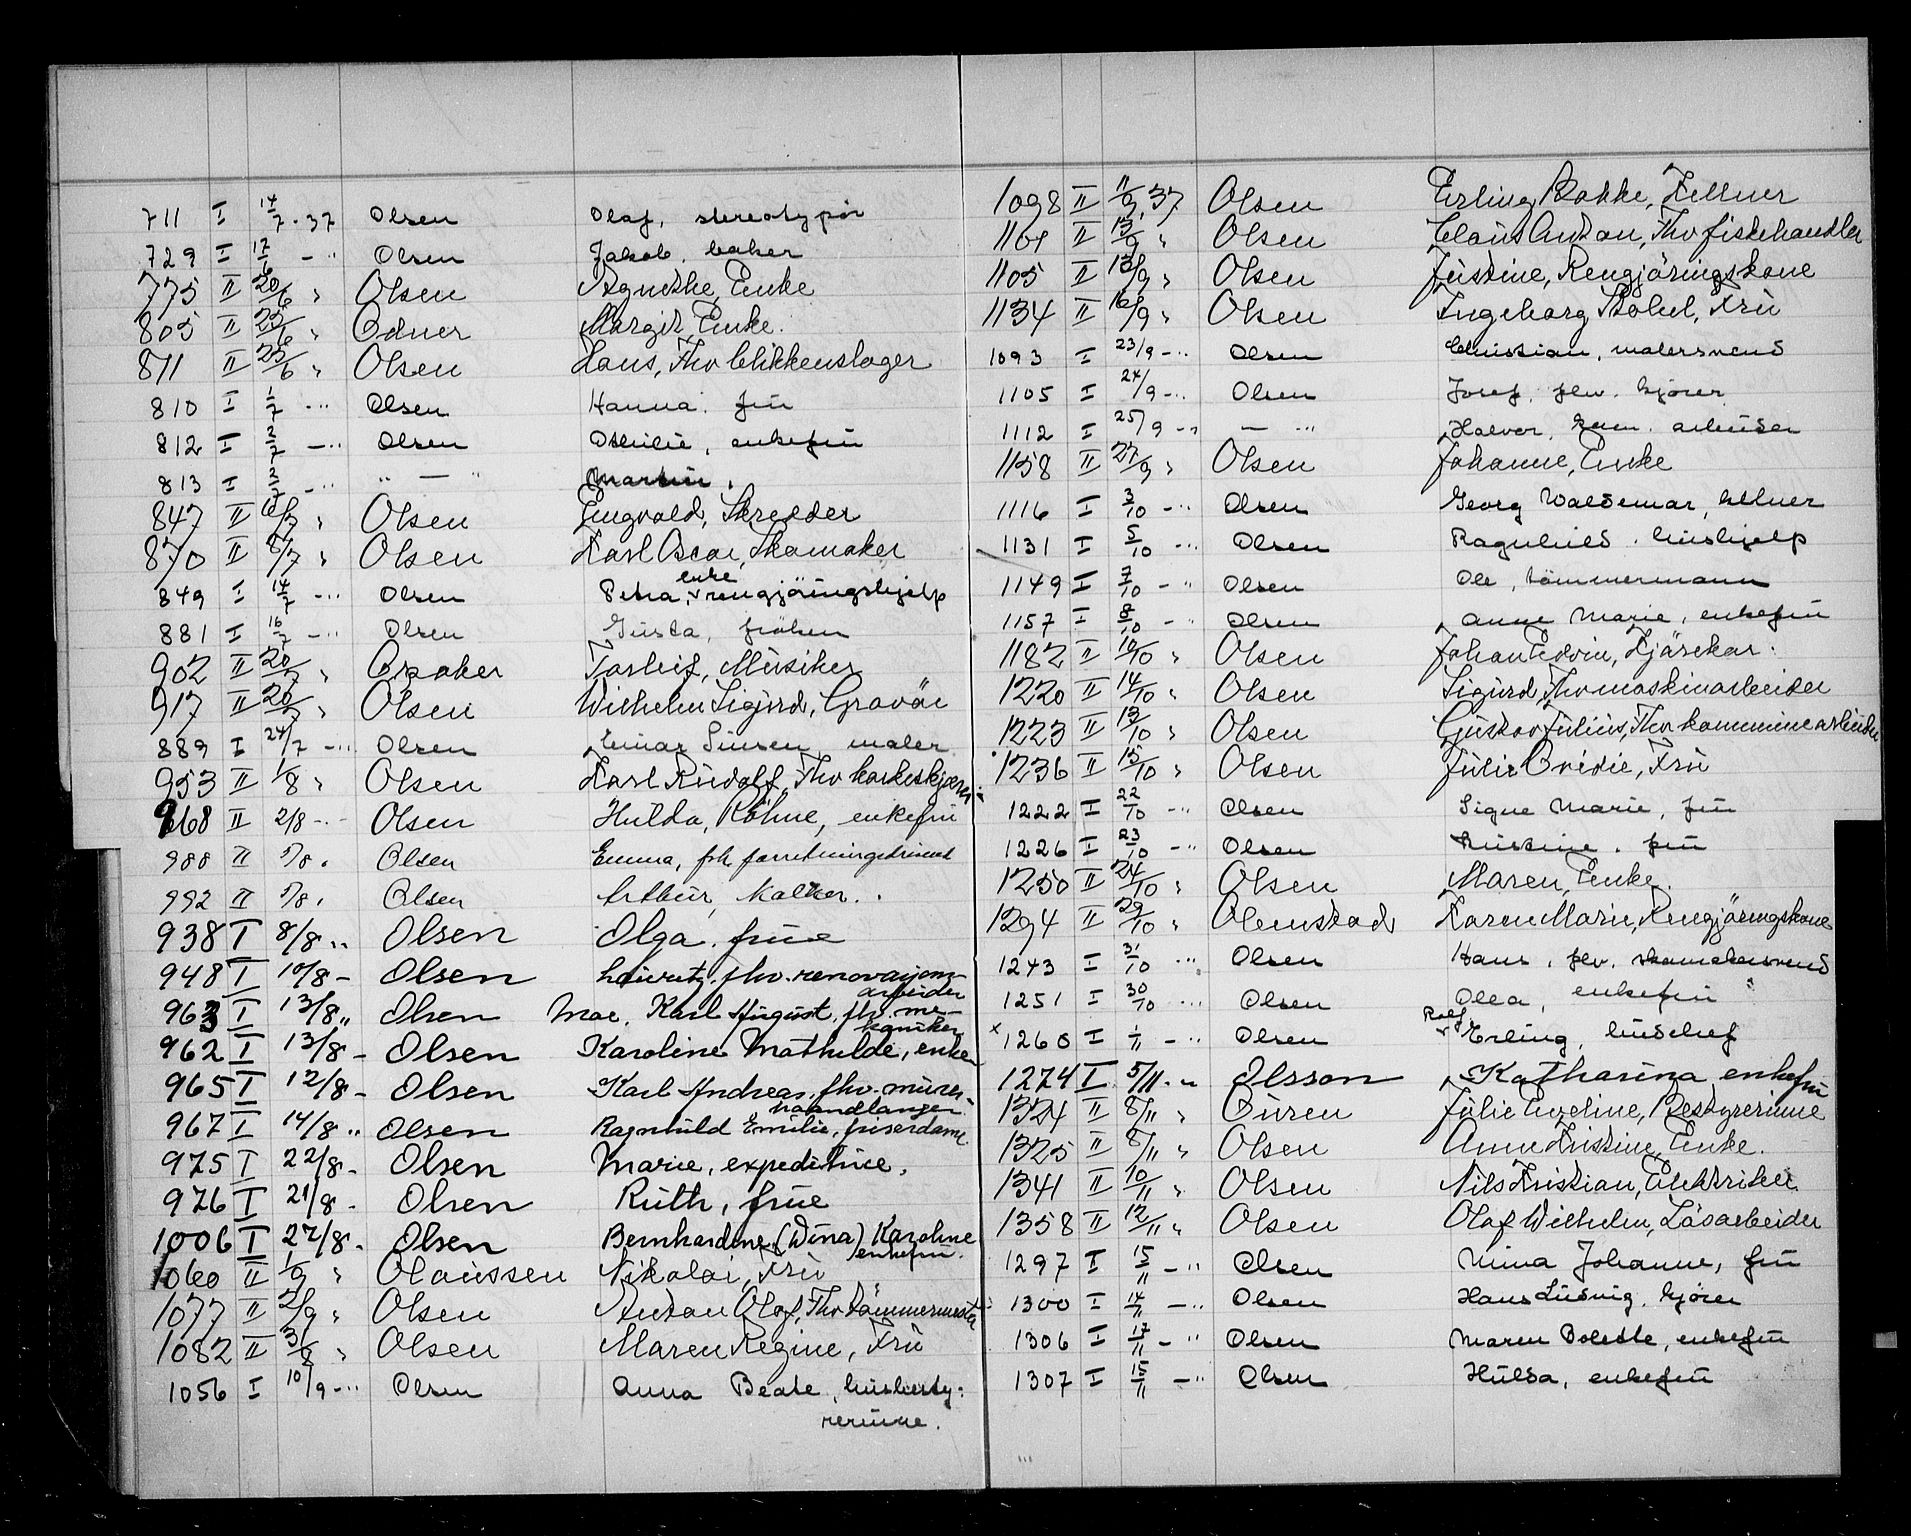 711 I 14/7 - 37 Olsen Olaf, stereotypør
729 I 17/6 - " Olsen Jakob, baker
775 II 20/6 " Olsen Agnethe, Enke
805 II 23/6 " Odner Margit, Enke.
811 II 23/6 " Olsen Hans, Fhv blikkenslager
810 I 1/7 - " Olsen Hanna, fru
812 I 2/7 - " Olsen Othilie, enkefru
813 I 2/7 - " " — " Martin.
847 II 6/7 " Olsen Engvald, Skredder
870 II 8/7 " Olsen Karl Oscar, Skomaker
849 I 14/7 - " Olsen Petra, enke rengjöringshjelp
881 I 16/7 - " Olsen Gusta, fröken
902 II 20/7 " Opaker Torleif, Musiker
917 II 20/7 " Olsen Wilhelm Sigurd, Gravör
889 I 24/7 - " Olsen Einar Simsen, maler
953 II 1/8 " Olsen Karl Rudolf, Fhv korkeskjærer
968 II 2/8 - " Olsen Hulda, Röhne, enkefru
988 II 5/8 " Olsen Emma, frk forretningsdrivend
992 II 7/8 " Olsen Arthur, kalker.
938 I 8/8 " Olsen Olga, frue
948 I 10/8 - Olsen Lauritz, fhv. renovasjons-
arbeider
963 I 13/8 " Olsen Moe, Karl August, fhv. me-
kaniker
962 I 13/8 - Olsen Karoline Mathilde, enke
965 I 12/8 - Olsen Karl Andreas, fhv. murer-
haandlanger
967 I 14/8 " Olsen Ragnhild Emilie, friserdame.
975 I 22/8 - Olsen Marie, expeditrice.
976 I 21/8 - Olsen Ruth, frue
1006 I 27/8 - Olsen Bernhardine (Dina) Karoline
enkefru.
1060 II 1/9 " Olaussen Nikolai, Fru
1077 II 2/9 " Olsen Anton Olaf, Fhv tömmermester
1082 II 3/9 " Olsen Maren Regine, Fru
1056 I 10/9 - " Olsen Anna Beate, husbesty-
rerinne.
1098 II 11/9 37 Olsen Erling Bakke, Kellner
1104 II 13/9 " Olsen Claus Anton, Fhv fiskehandler
1105 II 13/9 " Olsen Justine, Rengjöringskone
1134 II 16/9 " Olsen Ingeborg Bohel, Fru
1093 I 23/9 - " Olsen Christian, malersvend
1105 I 24/9 - " Olsen Josef, fhv. kjører
1112 I 25/9 - " — " Halvor, kom. arbeider
1158 II 27/9 " Olsen Johanne, Enke
1116 I 3/10 - " Olsen Georg Waldemar, kellner
1131 I 5/10 - " Olsen Ragnhild, hushjelp
1149 I 7/10 - " Olsen Ole, tömmermann
1157 I 8/10 - " Olsen Anne Marie, enkefru
1182 II 10/10 " Olsen Johan Edvin, Kjörekar.
1220 II 14/10 " Olsen Sigurd, Fhv maskinarbeider
1223 II 13/10 " Olsen Gustav Julius, Fhv kommunearbeider
1236 II 15/10 " Olsen Julie Ovidie, Fru
1222 I 22/10 - " Olsen Signe Marie, fru
1226 I 23/10 - " Olsen Kristine, fru
1250 II 24/10 " Olsen Maren, Enke.
1294 II 29/10 " Olmstad Karen Marie, Rengjöringskone
1243 I 31/10 - " Olsen Hans, fhv. skomakersvend
1251 I 30/10 - " Olsen Olea, enkefru
Rolf
x 1260 I 1/11 - " Olsen Erling, huschef
1274 I 5/11 - " Olsson Katharina, enkefru
1324 II 8/11 " Ouren Julie Eveline, Bestyrerinne
1325 II 8/11 " Olsen Anne Kristine, Enke.
1341 II 10/11 " Olsen Nils Kristian, Elektriker
1358 II 12/11 " Olsen Olaf Wilhelm, Lösarbeider
1297 I 15/11 - " Olsen Mina Johanne, fru
1300 I 14/11 - " Olsen Hans Ludvig, kjører
1306 I 17/11 - " Olsen Maren Bolette, enkefru
1307 I 15/11 - " Olsen Hulda, enkefru